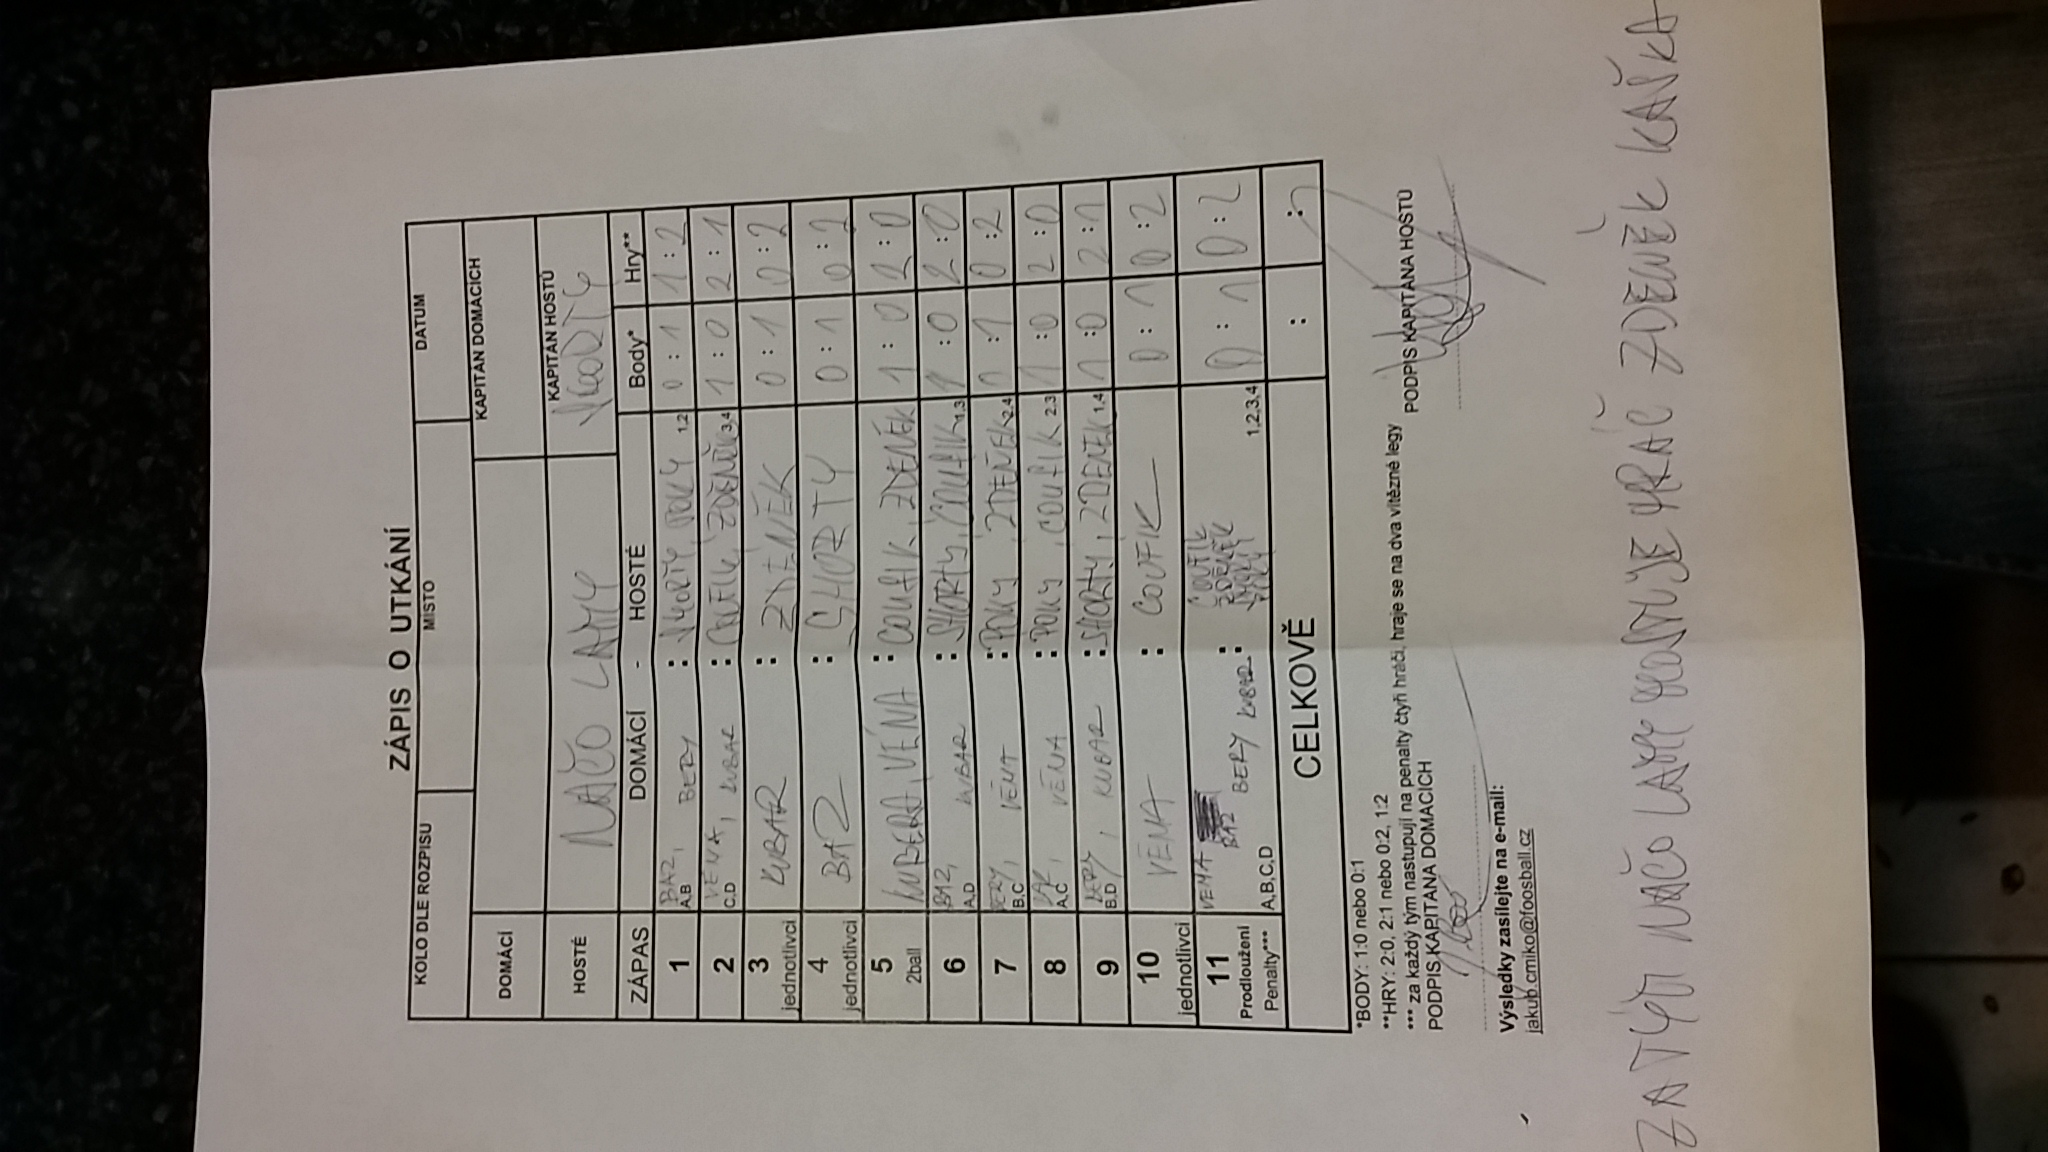 ZÁPIS O UTKÁNÍ
KOLO DLE ROZPISU MÍSTO DATUM
DOMÁCÍ KAPITÁN DOMÁCÍCH
HOSTÉ NAČO LAMY KAPITÁN HOSTŮ
ZÁPAS DOMÁCÍ - HOSTÉ Body* Hry**
1 BAZ, BERY A,B : 1,2 0 : 1 1 : 2
2 VĚNA, KUBAR C,D : ZDENĚK 3,4 1 : 0 2 : 1
3 jednotlivci KUBAR : ZDENĚK 0 : 1 0 : 2
4 jednotlivci BAZ : SHORTY 0 : 1 0 : 2
5 2ball KUBERA, VĚNA : COUFIK, ZDENĚK 1 : 0 2 : 0
6 BAZ, KUBAR A,D : SHORTY, COUFIK 1,3 1 : 0 2 : 0
7 BERY, VĚNA B,C : POKY, ZDENĚK 2,4 : 1 0 : 2
8 BAZ, VĚNA A,C : POKY, COUFIK 2,3 1 : 0 2 : 0
9 BERY, KUBAR B,D : SHORTY, ZDENEK 1,4 1 : 0 2 : 1
10 jednotlivci VĚNA : COUFIK 0 : 1 0 : 2
11 Prodloužení Penalty*** VĚNA BAZ BERY KUBAR A,B,C,D : COUFIK ZDENĚK 1,2,3,4 0 : 1 0 : 2
CELKOVĚ : :
*BODY: 1:0 nebo 0:1
**HRY: 2:0, 2:1 nebo 0:2, 1:2
*** za každý tým nastupují na penalty čtyři hráči, hraje se na dva vítězné legy
PODPIS KAPITÁNA DOMÁCÍCH PODPIS KAPITÁNA HOSTŮ
Výsledky zasílejte na e-mail:
jakub.cmiko@foosball.cz
ZA TÝM NAČO LAMY HOSTUJE HRÁČ ZDENĚK KAŠKA